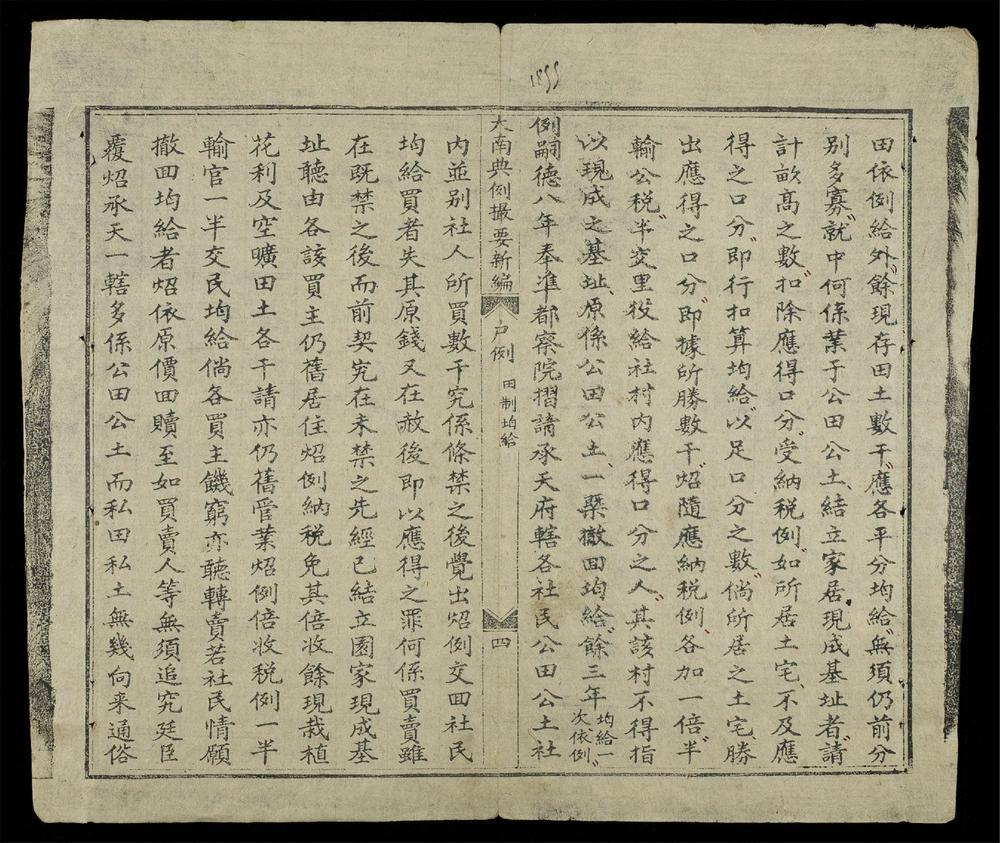 1855
田依例給外餘現存田土數干應各平分均給無須仍前分
別多寡就中何係業于公田公土結立家居現成基址者請
計畝高之數扣除應得口分受納稅例如所居土宅不及應
得之口分即行扣算均給以足口分之數倘所居之土宅勝
出應得之口分即據所勝數干炤隨應納稅例各加一倍半
輸公稅半交里役給社村內應得口分之人其該村不得指
以現成之基址原係公田公土一槩撤回均給餘三年均給一
次依例
例嗣德八年奉準都察院摺請承天府轄各社民公田公土社
大南典例撮要新編 戶例 田制均給 四
內並別社人所買數干究係條禁之後覺出炤例交回社民
均給買者失其原錢又在赦後即以應得之罪何係買賣雖
在既禁之後而前契究在未禁之先經已結立園家現成基
址聽由各該買主仍舊居住炤例納稅免其倍收餘現栽植
花利及空曠田土各干請亦仍舊管業炤例倍收稅例一半
輸官一半交民均給倘各買主饑窮亦聽轉賣若社民情願
撤回均給者炤依原價回贖至如買賣人等無須追究廷臣
覆炤承天一轄多係公田公土而私田私土無幾向來通俗